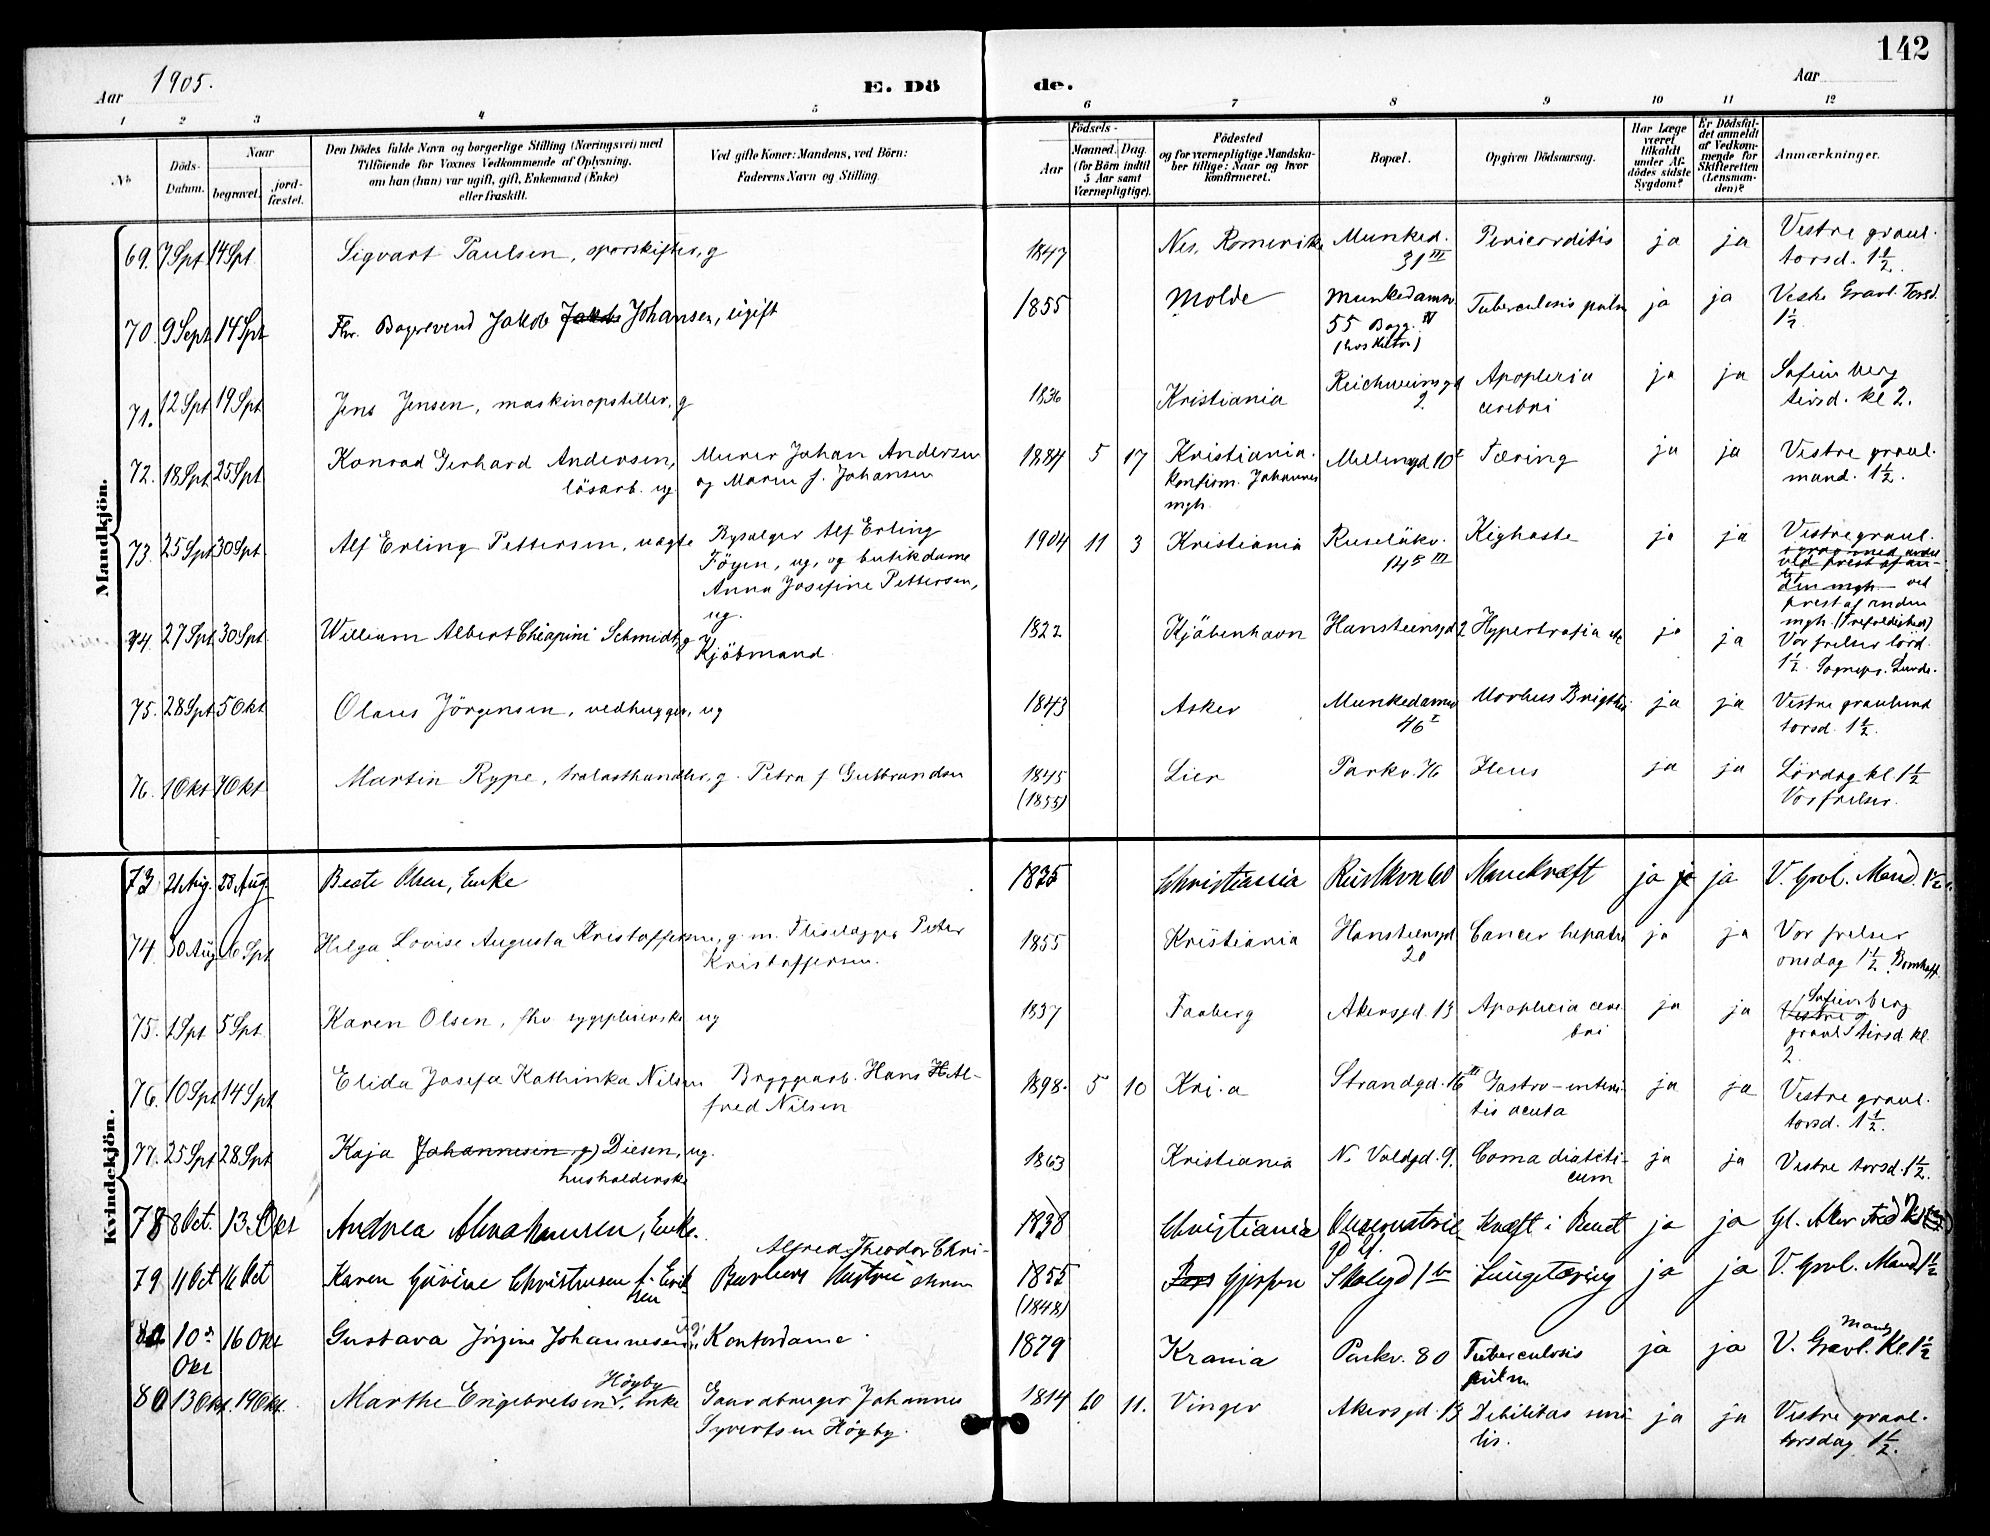 142
Aar 1905.
E. Dö
de.
Aar
1 2 3 4 5 6 7 8 9 10 11 12
No
Döds-Datum.
Naar
begravet.
jord-fæstet.
Den Dödes fulde Navn og borgerlige Stilling (Næringsvei) med
Tilföiende for Voxnes Vedkommende af Oplysning,
om han (hun) var ugift, gift, Enkemand (Enke)
eller fraskilt.
Ved gifte Koner: Mandens, ved Börn:
Faderens Navn og Stilling.
Födsels-
Aar
Maaned. Dag.
(for Börn indtil
5 Aar samt
Værnepligtige).
Födested
og for værnepligtige Mandska-
ber tillige: Naar og hvor
konfirmeret.
Bopæl.
Opgiven Dödsaarsag.
Har Læge
været
tilkaldt
under Af-
dödes sidste
Sygdom?
Er Dödsfal-
det anmeldt
af Vedkom-
mende for
Skifteretten
(Lensman-
den)?
Anmærkninger.
Mandkjön.
69. 7 Spt 14 Spt Sigvart Paulsen, sporskifter, g 1847 Nes, Romerike Munked. 31 III Pericarditis ja ja Vestre gravl. torsd. 1 1/2.
70. 9 Sept 14 Spt Fhv. Bogrevend Jakob Johansen, ugift 1855 Molde Munkedamsv 55 Bagg. IV Tuberculosis pulm ja ja Vestre Gravl. Torsd. 1 1/2.
71. 12 Spt 19 Spt Jens Jensen, maskinopstiller, g 1836 Kristiania Reichweinsgd 2. Apoplexia cerebri ja ja Sofienberg tirsd. kl 2.
72. 18 Spt 25 Spt Konrad Gerhard Andersen, lösarb. ug. Murer Johan Andersen og Maren f. Johansen 1884 5 17 Kristiania. Konfirm. Johannes mgh. Möllergd. 10 I Tæring ja ja Vestre gravl. mand. 1 1/2.
73. 25 Spt 30 Spt Alf Erling Pettersen, uægte Bysælger Alf Erling Föyen, ug, og butikdame Anna Josefine Pettersen, ug. 1904 11 3 Kristiania Ruselökv. 14 III Kighoste ja ja Vestre gravl. ved prest af anden mgh. (Trefoldighed)
74. 27 Spt 30 Spt William Albert Chiapini Schmidt, g Kjöbmand. 1822 Kjöbenhavn Hansteensgd 2 Hypertrofia ja ja Vor frelser lörd. 1 1/2. Sognepr. Lunde.
75. 28 Spt 5 Okt Olaus Jörgensen, vedhugger, ug 1843 Asker Munkedamsv 46 I Morbus Brightii ja ja Vestre gravlund torsd. 1 1/2.
76. 1 Okt 7 Okt Martin Rype, trælasthandler, g. Petra f Gulbrandsen 1845 (1855) Lier Parkv. 76 Ileus ja ja Lördag kl 1 1/2 Vor frelser.
Kvindekjön.
73 21 Aug. 28 Aug. Beate Olsen, Enke 1825 Christiania Ruslkvn 60 Marekræft ja ja V. Gravl. Mand. 1 1/2.
74. 30 Aug 6 Spt Helga Lovise Augusta Kristoffersen, g. m. Fliselægger Peter Kristoffersen. 1855 Kristiania Hansteensgd 20 Cancer hepatis ja ja Vor frelser onsdag 1 1/2. Bomhoff.
75. 1 Spt 5 Spt Karen Olsen, fhv sygepleierske ug 1837 Faaberg Akersgd. 13 Apoplexia cerebri ja ja Vestre Sofienberg gravl tirsd. kl. 2.
76. 10 Spt 14 Spt Elida Josefa Kathinka Nilsen Bryggearb. Hans H. Alfred Nilsen 1898. 5 10 Kri.a Strandgd. 16 III Gastro-enteritis acuta ja ja Vestre gravl. torsd. 1 1/2.
77. 25 Spt 28 Spt Kaja (Johannesen g) Diesen, ug. husholderske 1863 Kristiania N. Voldgd. 9. Coma diabeticum ja ja Vestre torsd. 1 1/2.
78 8 Oct. 13. Okt Andrea Abrahamsen, Enke. 1838 Christiania Observatorie Kræft i Brust ja ja Gl. Aker
79. 11 Oct 16 Oct Karen Gurine Christensen f. Eriksen Alfred Theodor Christensen Barbers Hustru 1855 (1848) Gjerpen Skolegd 1 b Lungetæring ja ja V. Gravl. Mand. 1 1/2
80 10 Okt 16 Okt Gustava Jörgine Johannesen ug. Kontordame. 1879 Krania Parkv. 80 Tuberculosis pulm ja ja V. Gravl. Mand Kl 1 1/2
80 13 Okt. 19 Okt. Marthe Engebretsen Höyby. enke Gaardbruger Johannes Syvertsen Höyby. 1814 10 11. Vinger Akersgd. 13 Debilitas senilis. ja ja Vestre gravl. torsdag 1 1/2.